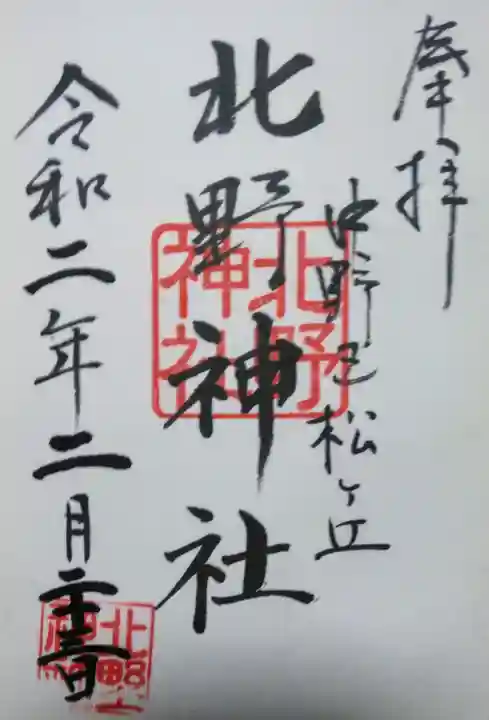 奉拝
中野区松ヶ丘
北野神社
北野
神社
令和二年二月二十三日